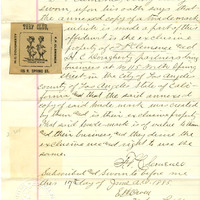 sworn, upon his oath says that
the annexed copy of a trademark
which is made a part of this
affidavit is the exclusive
property of
H C Dougherty
business at No North Spring
street in the City of Los Angeles
county of Los Angeles State of Cali-
fornia and that the said annexed
copy of said trade mark was created
by them and is their exclusive property
and said trade mark is of value to them
and their business, and they desire the
exclusive use and right to use the
same.
Subscribed and sworn to before
me this 19 day of June A.D. 1885
TURF CLUB,
SPRING ST.